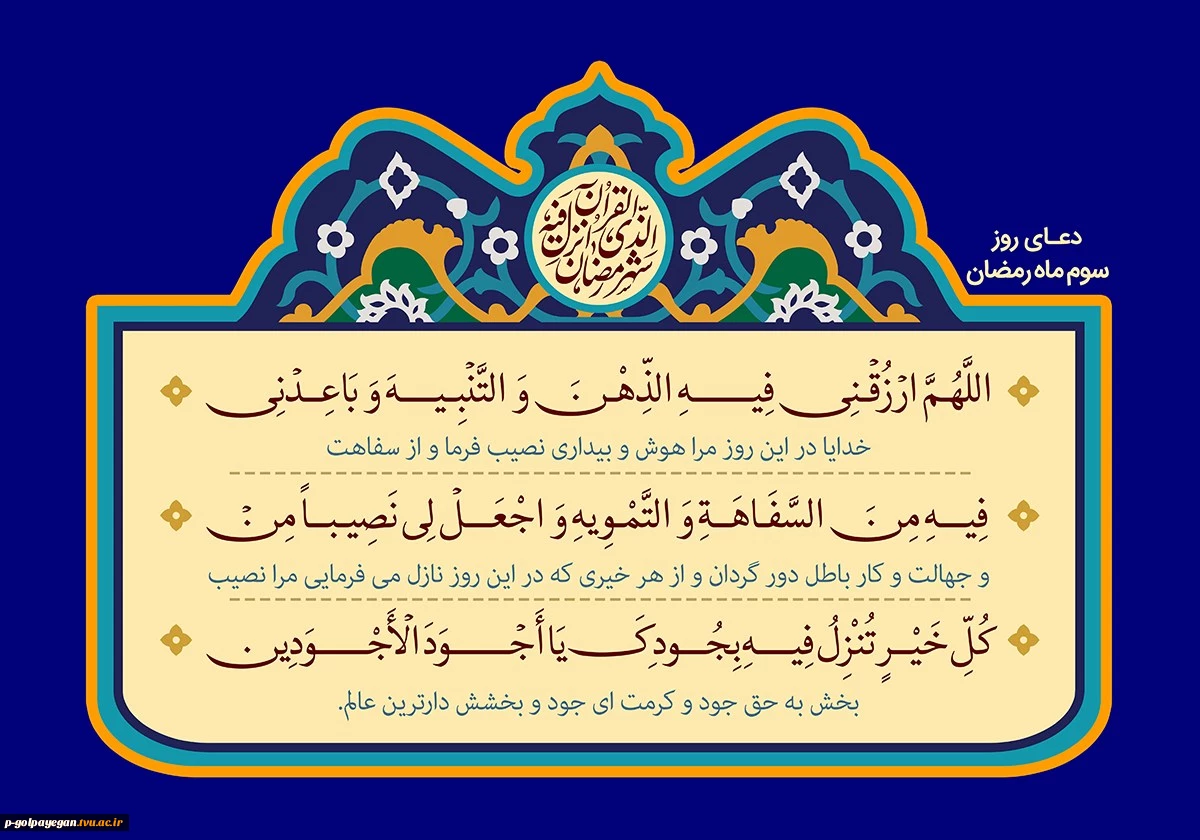 شهر رمضان الذی انزل فیه القرآن
دعـای روز
سوم ماه رمضان
اللَّهُمَّ ارْزُقْنِی فِیهِ الذِّهْنَ وَ التَّنْبِیهَ وَ بَاعِدْنِی
خدایا در این روز مرا هوش و بیداری نصیب فرما و از سفاهت
فِیهِ مِنَ السَّفَاهَةِ وَ التَّمْوِیهِ وَ اجْعَلْ لِی نَصِیباً مِنْ
و جهالت و کار باطل دور گردان و از هر خیری که در این روز نازل می فرمایی مرا نصیب
کُلِّ خَیْرٍ تُنْزِلُ فِیهِ بِجُودِکَ یَا أَجْوَدَ الْأَجْوَدِینَ
بخش به حق جود و کرمت ای جود و بخشش دارترین عالم.
p-golpayegan.tvu.ac.ir